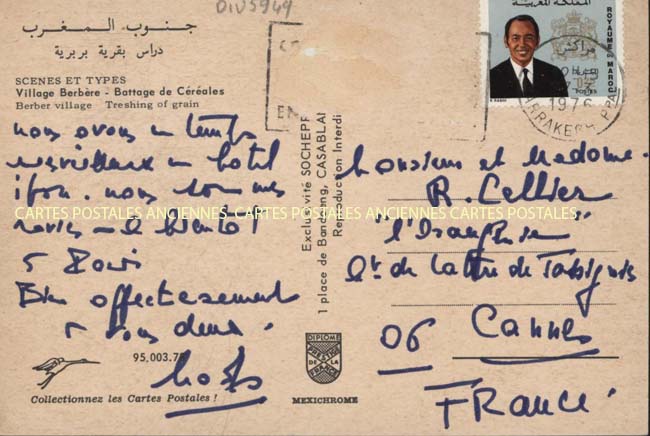 DIV5949
جنوب المغرب
دراس بقرية بربرية
SCENES ET TYPES
Village Berbère - Battage de Céréales
Berber village Treshing of grain
nous avons un temps
merveilleux un hotel
nous sommes
ravis - à bientôt
Bien affectueusement
à vous deux.
95,003.7
Collectionnez les Cartes Postales !
Exclusivité SOCHEPR
1 place de Bandoeng, CASABLAN
Reproduction Interdi
DIPLOME
PRESTIGE
DE LA
FRANCE
MEXICHROME
المملكة المغربية
ROYAUME DU MAROC
POSTES
مراكش
1976
MARRAKECH PPAL
Monsieur et Madame.
R. Cellier
de Lattre de Tassigny
06 Cannes
FRANCE.
CARTES POSTALES ANCIENNES CARTES POSTALES ANCIENNES CARTES POSTALES